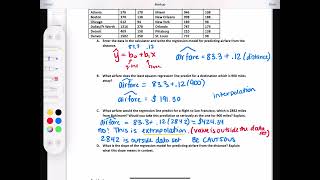 Atlanta 576 178 Miami 946 198
Boston 370 138 New Orleans 998 188
Chicago 612 94 New York 189 98
Dallas/Ft Worth 1216 278 Orlando 787 179
Detroit 409 158 Pittsburgh 210 138
Denver 1502 258 St. Louis 737 98
a. Enter the data in the calculator and write the regression model for predicting airfare from the distance.
83.3 .12
ŷ = b₀ + b₁x
airfare = 83.3 + .12 (distance)
b. What airfare does the least square regression line predict for a destination which is 900 miles away?
airfare = 83.3 + .12(900)
airfare = $ 191.30
interpolation
c. What airfare would the regression line predict for a flight to San Francisco, which is 2842 miles from Baltimore? Would you take this prediction as seriously as the one for 900 miles? Explain
airfare = 83.3 + .12(2842) = $424.34
no! This is extrapolation (value is outside the data set)
2842 is outside data set BE CAUTIOUS
What is the slope of the regression model for predicting airfare from the distance? Explain what this slope means in context.